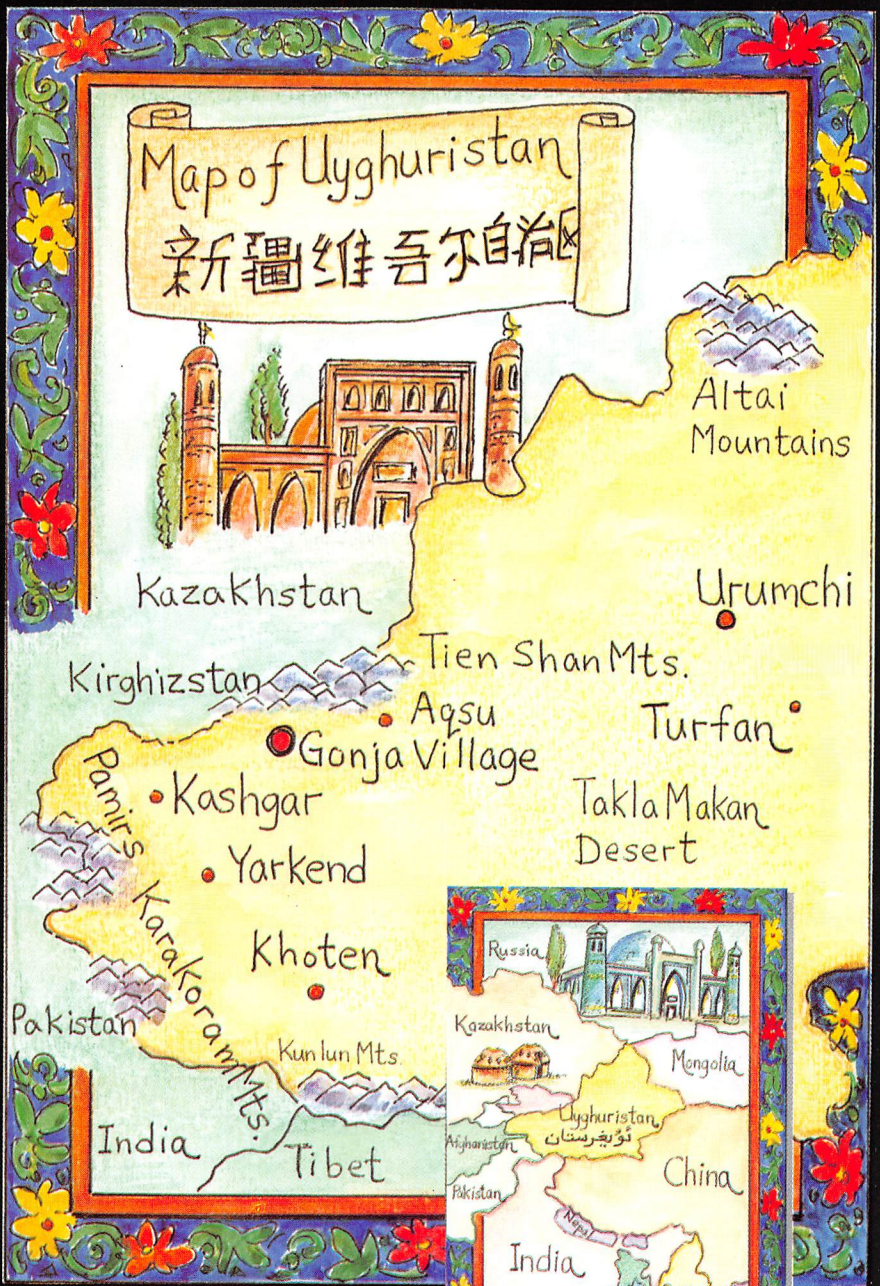 Map of Uyghuristan
新疆维吾尔自治区
Altai
Mountains
Kazakhstan
Urumchi
Tien Shan Mts.
Kirghizstan
Aqsu
Turfan
Gonja Village
Pamirs
Kashgar
Takla Makan
Desert
Yarkend
KaraKoram Mts.
Khoten
Pakistan
Kunlun Mts.
India
Tibet
Russia
Kazakhstan
Mongolia
Uyghuristan
ئۇيغۇرستان
Afghanistan
China
Pakistan
Nepal
India